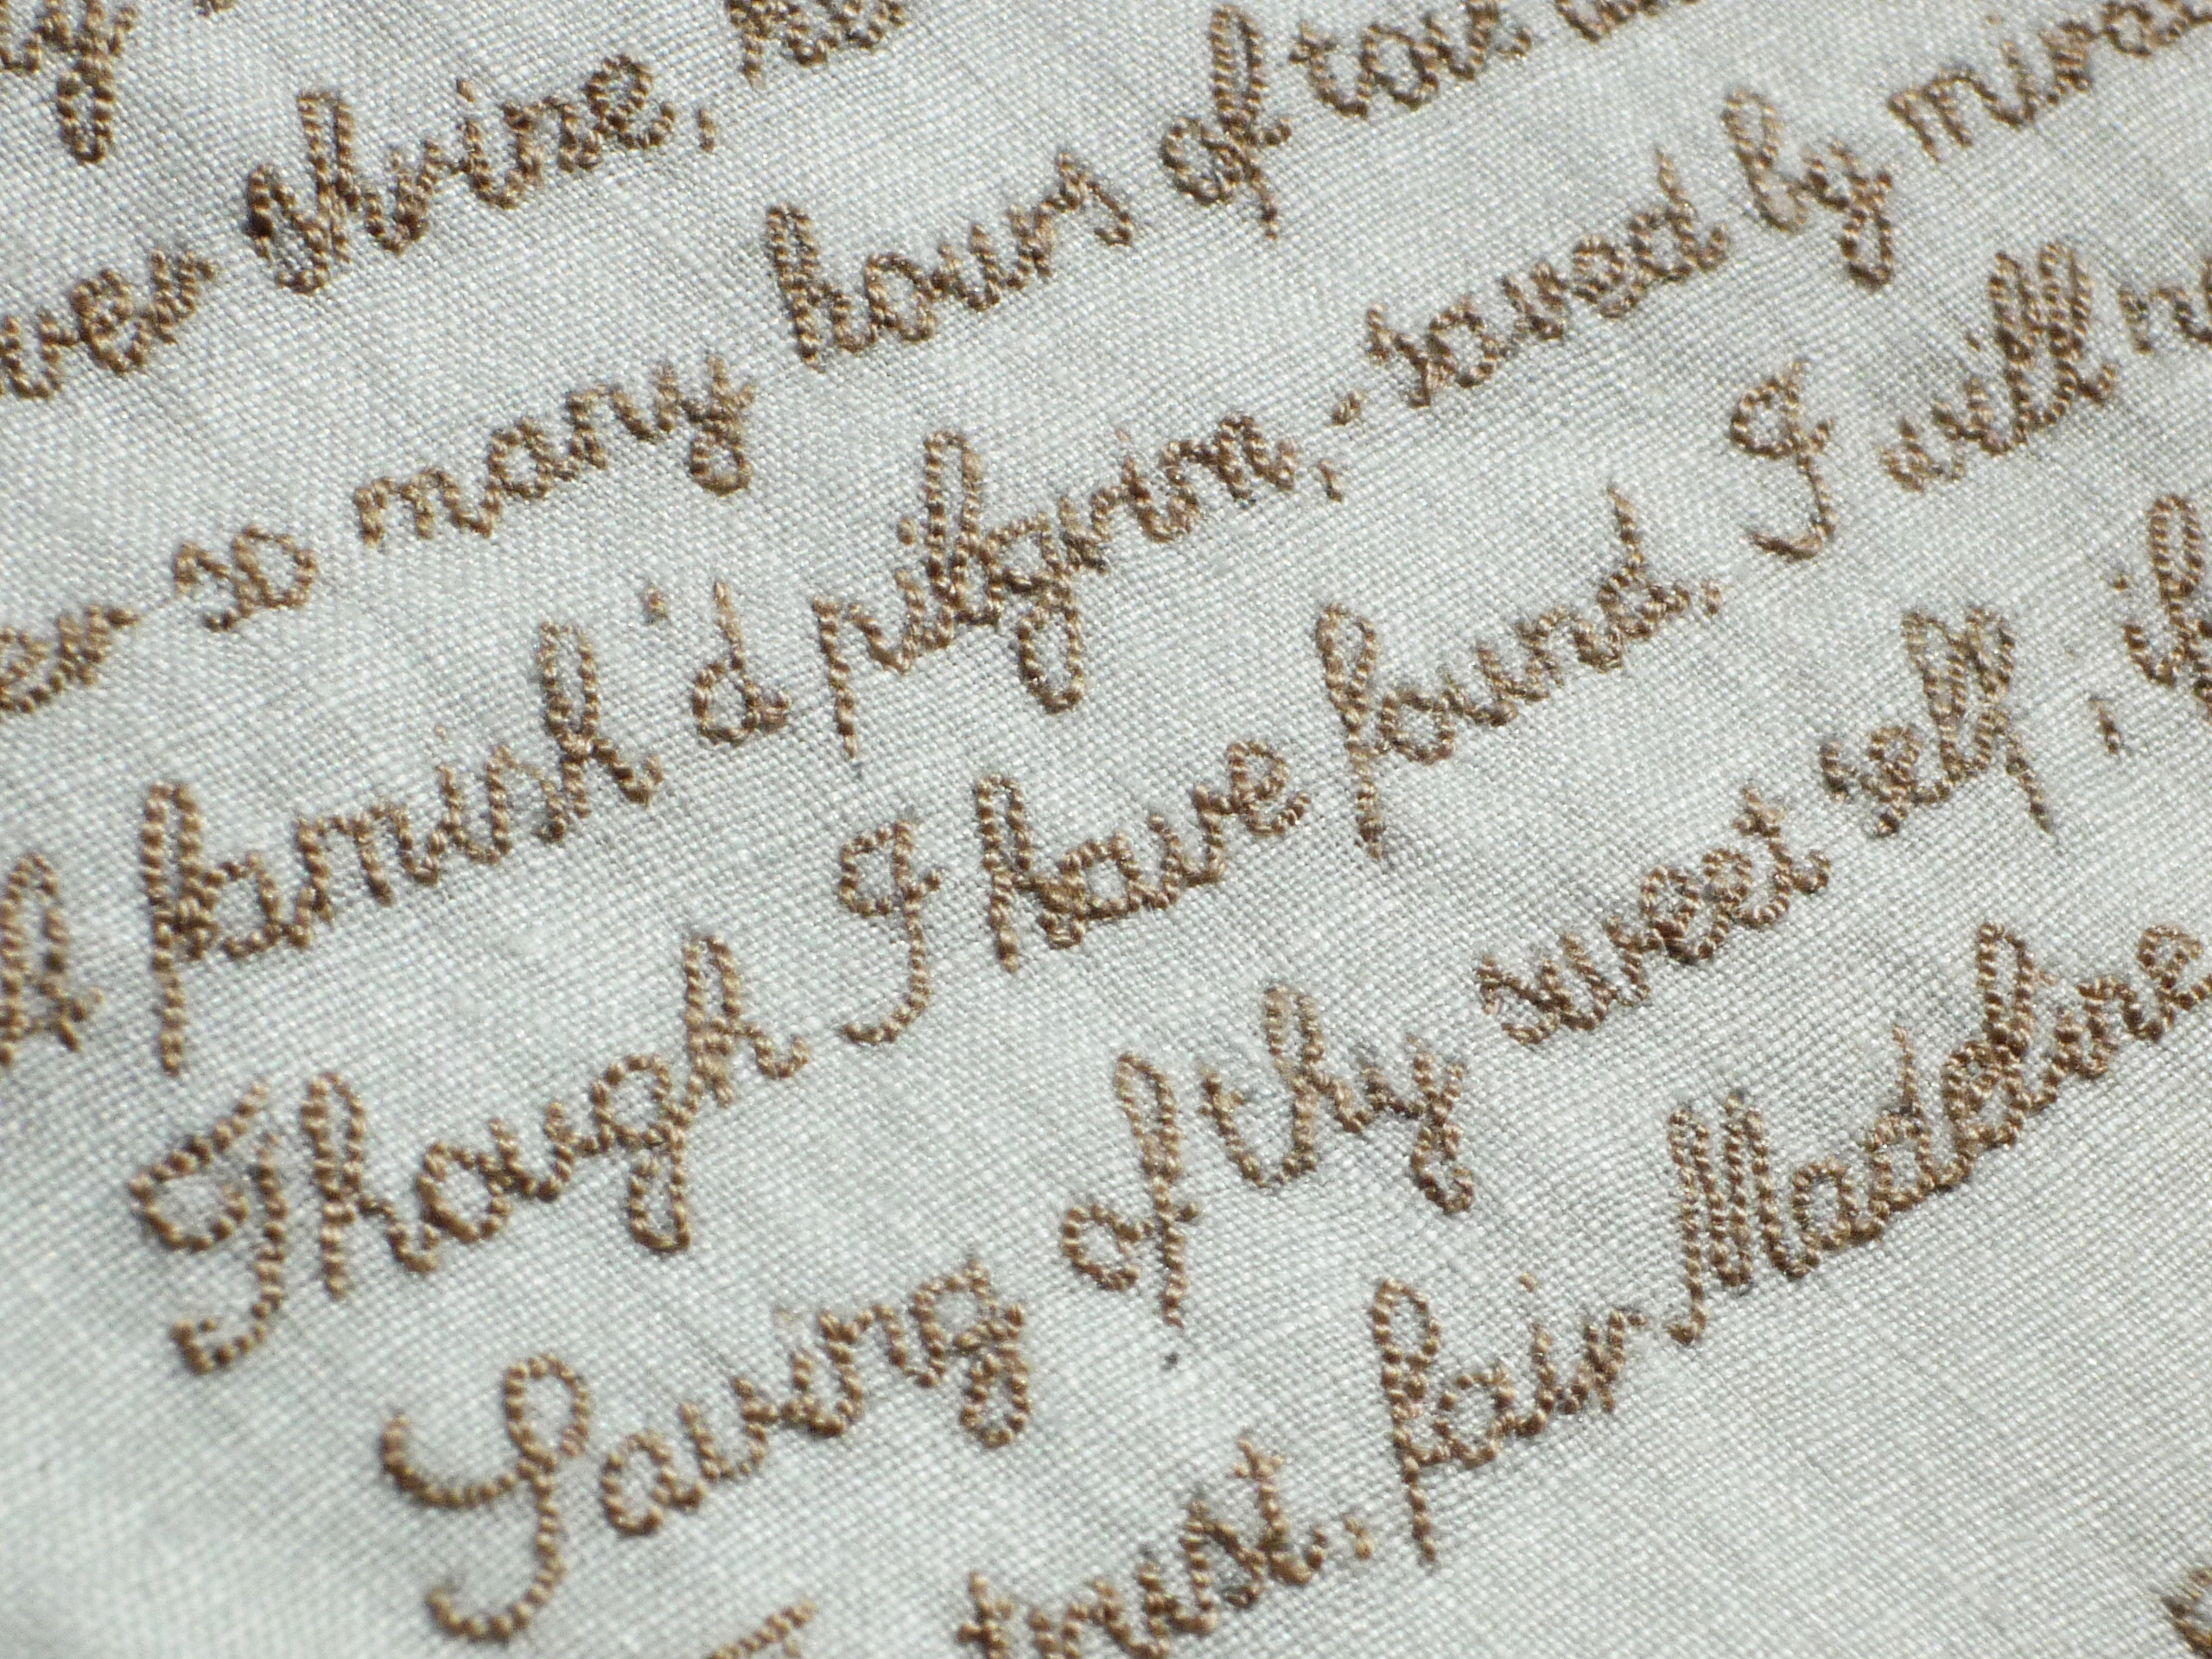 ver shrine,
so many hours of
famish'd pilgrim, - saved by mira
Though I have found, I will
Saving of thy sweet self;
trust, fair Madeline